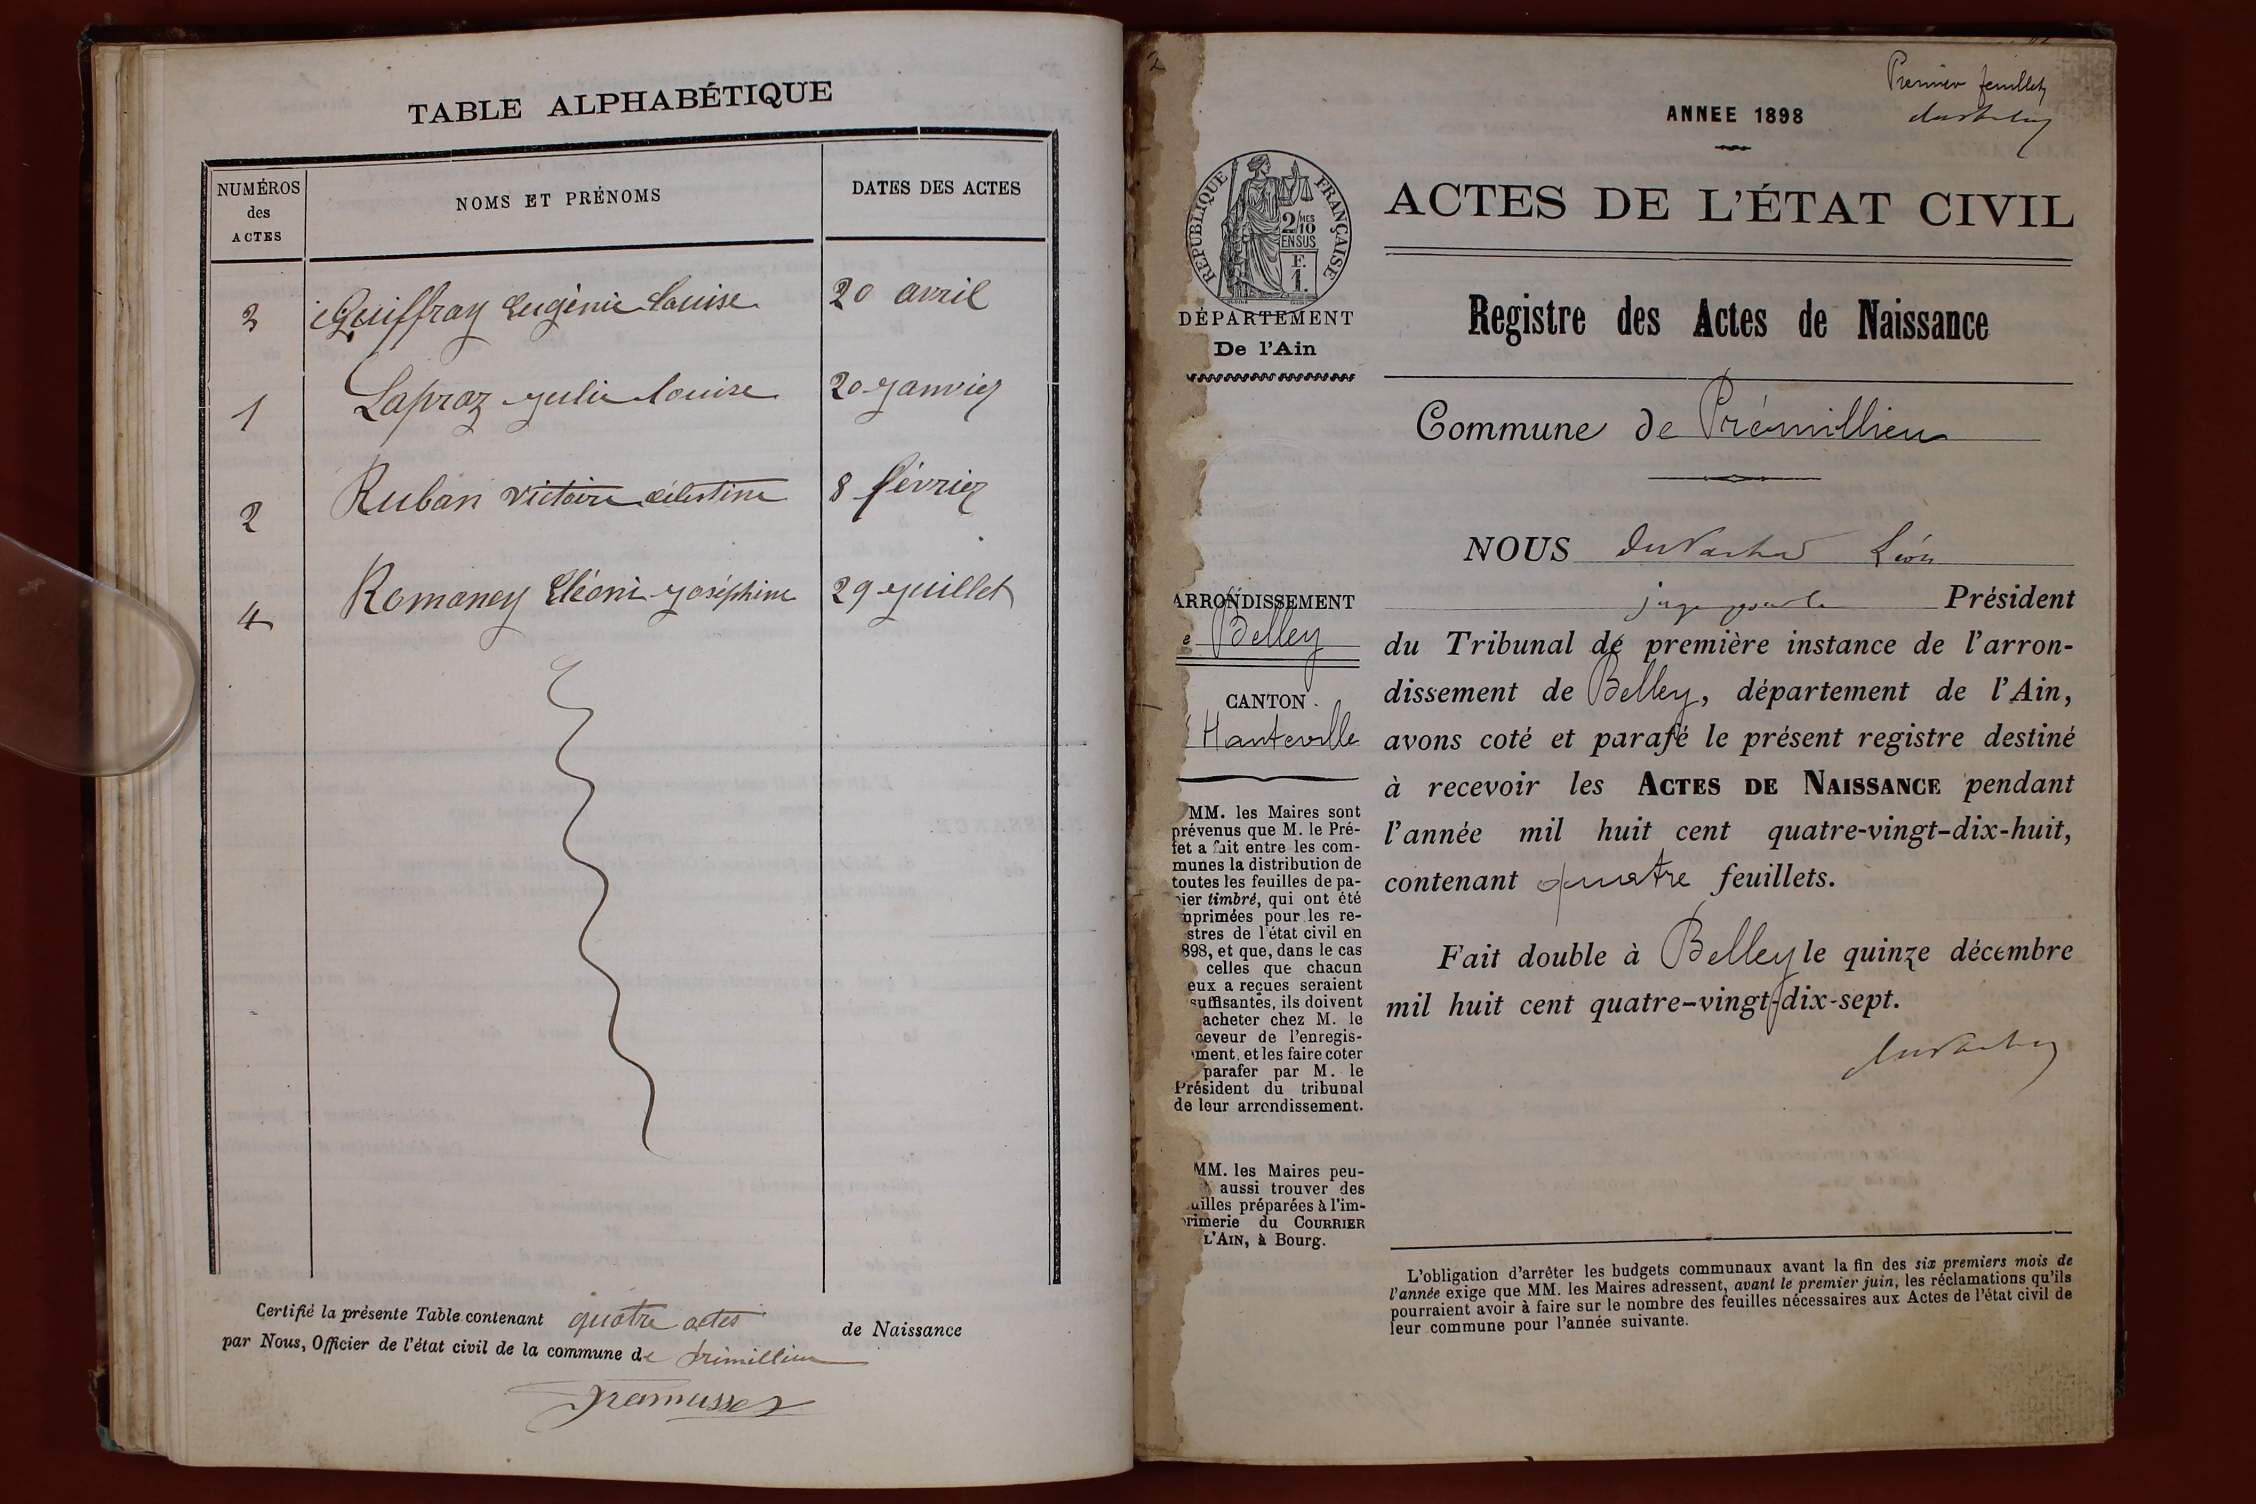 TABLE ALPHABÉTIQUE
NUMÉROS
des
ACTES
NOMS ET PRÉNOMS
DATES DES ACTES
3 Guiffray Eugénie Louise 20 avril
1 Lapraz Julie Louise 20 Janvier
2 Ruban Victoire Célestine 8 février
4 Romaney Cléonie Joséphine 29 Juillet
Certifié la présente Table contenant quatre actes de Naissance
par Nous, Officier de l'état civil de la commune de Prémillieu
2
Premier feuillet
ANNEE 1898
RÉPUBLIQUE FRANÇAISE
2/10 MES
EN SUS
F.
1.
DÉPARTEMENT
De l'Ain
ARRONDISSEMENT
e Belley
CANTON
Hauteville
MM. les Maires sont
prévenus que M. le Pré-
fet a fait entre les com-
munes la distribution de
toutes les feuilles de pa-
ier timbré, qui ont été
mprimées pour les re-
stres de l'état civil en
898, et que, dans le cas
celles que chacun
eux a reçues seraient
suffisantes, ils doivent
acheter chez M. le
ceveur de l'enregis-
ment, et les faire coter
parafer par M. le
Président du tribunal
de leur arrondissement.
MM. les Maires peu-
aussi trouver des
uilles préparées à l'im-
rimerie du COURRIER
L'AIN, à Bourg.
ACTES DE L'ÉTAT CIVIL
Registre des Actes de Naissance
Commune de Prémillieu
NOUS Léon
juge pour le Président
du Tribunal de première instance de l'arron-
dissement de Belley, département de l'Ain,
avons coté et parafé le présent registre destiné
à recevoir les ACTES DE NAISSANCE pendant
l'année mil huit cent quatre-vingt-dix-huit,
contenant quatre feuillets.
Fait double à Belley le quinze décembre
mil huit cent quatre-vingt-dix-sept.
L'obligation d'arrêter les budgets communaux avant la fin des six premiers mois de
l'année exige que MM. les Maires adressent, avant le premier juin, les réclamations qu'ils
pourraient avoir à faire sur le nombre des feuilles nécessaires aux Actes de l'état civil de
leur commune pour l'année suivante.